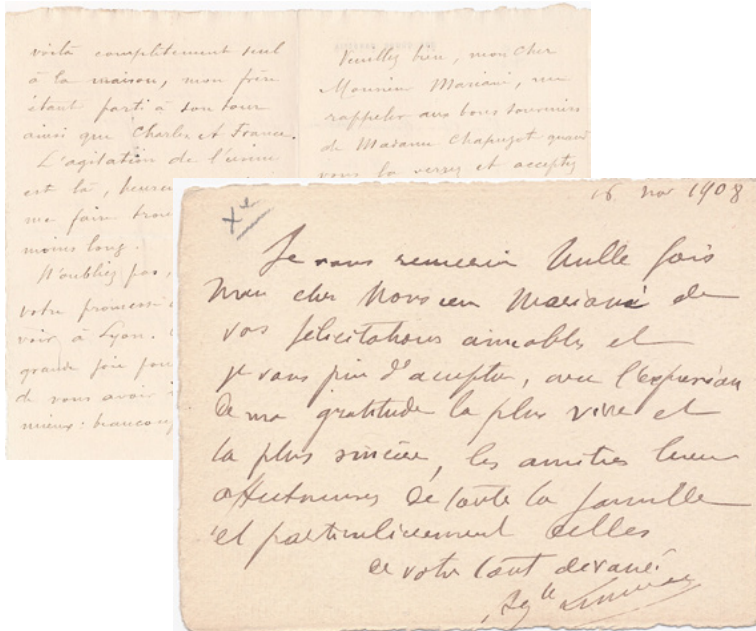 voilà complètement seul
à la maison, mon frère
étant parti à son tour
ainsi que Charles et France.
L'agitation de l'usine
est là,
me faire
moins long.
N'oubliez pas,
votre promesse
voir à Lyon.
grande joie pour
de vous avoir
mieux : beaucoup
Veuillez bien, mon cher
Monsieur Mariani, me
rappeler aux bons souvenirs
de Madame Chapuzot quand
vous la verrez et acceptez
16 nov 1908
Je vous remercie Mille fois
mon cher Monsieur Mariani de
vos félicitations aimables et
je vous prie d'accepter, avec l'expression
de ma gratitude la plus vive et
la plus sincère, les amitiés bien
affectueuses de toute la famille
et particulièrement celles
de votre tout dévoué